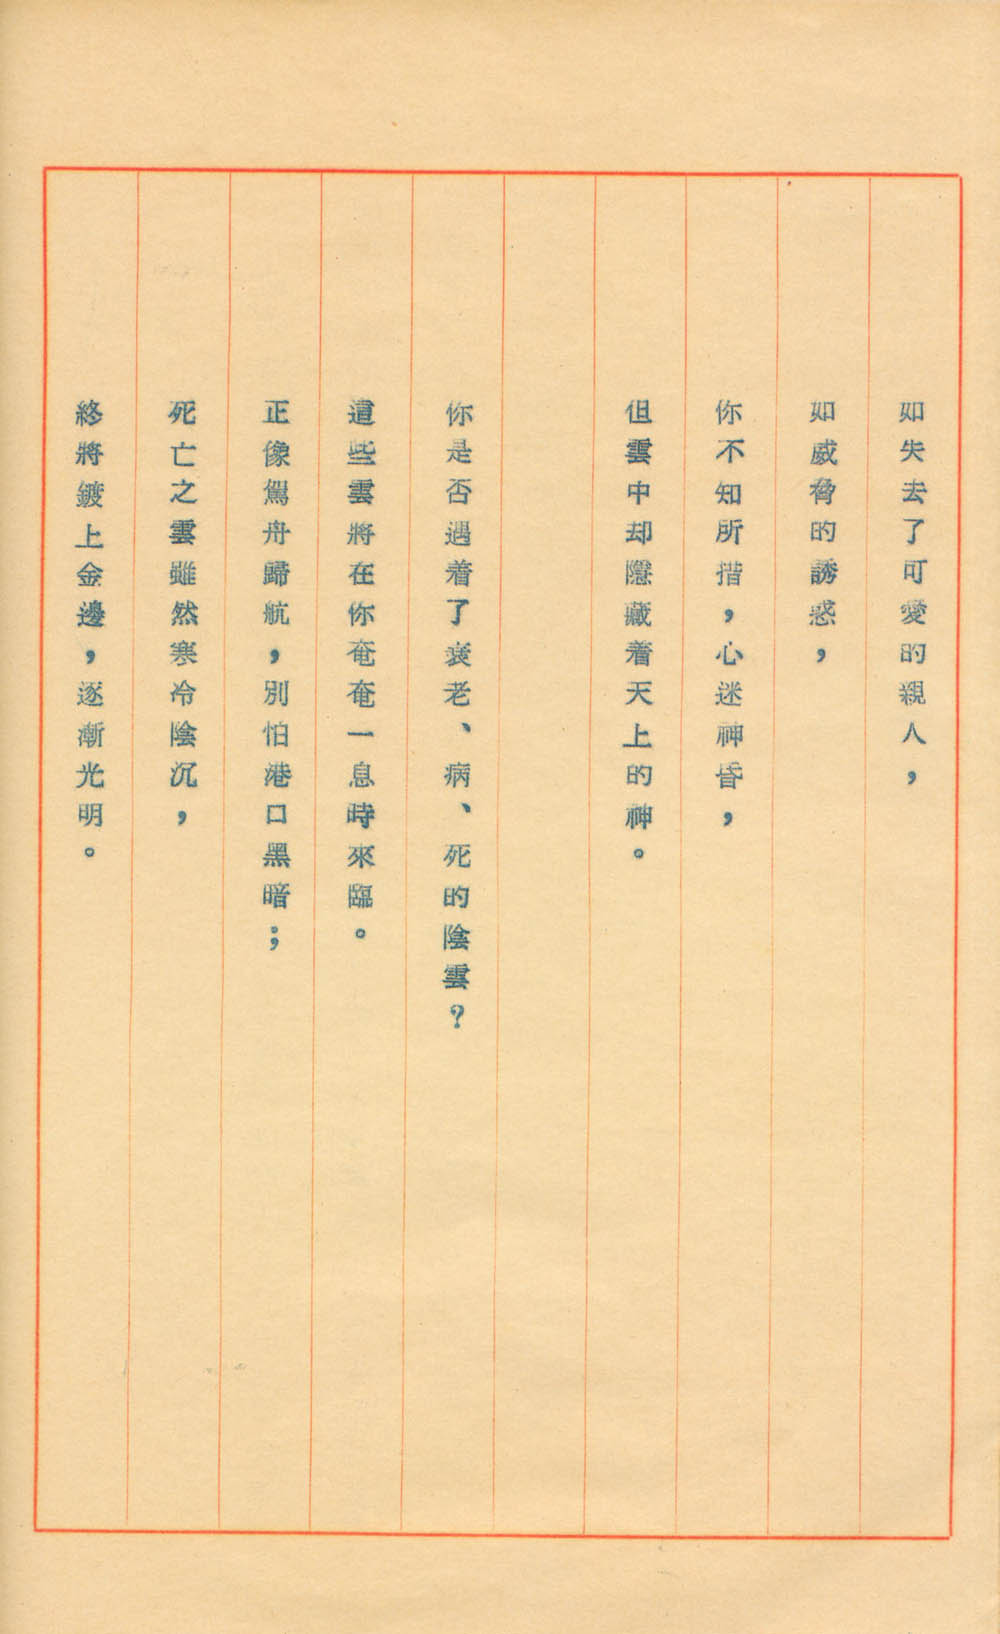 如失去了可愛的親人，
如威脅的誘惑，
你不知所措，心迷神昏，
但雲中却隱藏着天上的神。
你是否遇着了衰老、病、死的陰雲？
這些雲將在你奄奄一息時來臨。
正像駕舟歸航，別怕港口黑暗；
死亡之雲雖然寒冷陰沉，
終將鍍上金邊，逐漸光明。